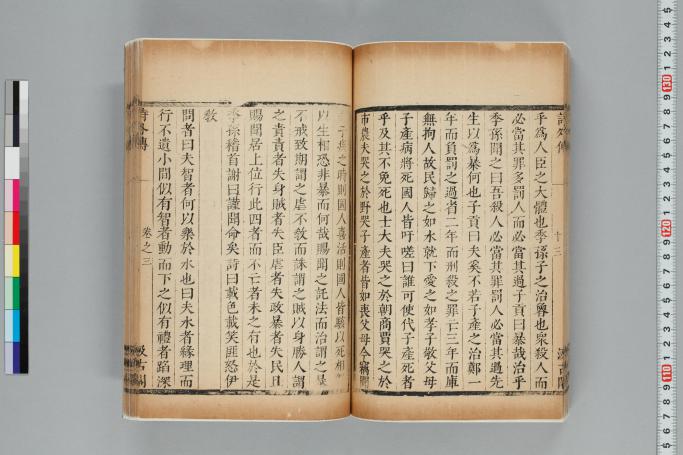 乎爲人臣之大體也季孫子之治魯也衆殺人而
必當其罪多罰人而必當其過子貢曰暴哉治乎
季孫聞之曰吾殺人必當其罪罰人必當其過先
生以爲暴何也子貢曰夫奚不若子產之治鄭一
年而負罰之過省二年而刑殺之罪亡三年而庫
無拘人故民歸之如水就下愛之如孝子敬父母
子產病將死國人皆吁嗟曰誰可使代子產死者
乎及其不免死也士大夫哭之於朝商賈哭之於
市農夫哭之於野哭子產者皆如喪父母今竊聞
子病之時則國人喜活則國人皆駭以死相
以生相恐非暴而何哉賜聞之託法而治謂之暴
不戒致期謂之虐不教而誅謂之賊以身勝人謂
之責責者失身賊者失臣虐者失政暴者失民且
賜聞居上位行此四者而不亡者未之有也於是
季孫稽首謝曰謹聞命矣詩曰載色載笑匪怒伊
敎
問者曰夫智者何以樂於水也曰夫水者緣理而
行不遺小間似有智者動而下之似有禮者蹈深
詩外傳
卷之三
汲古閣